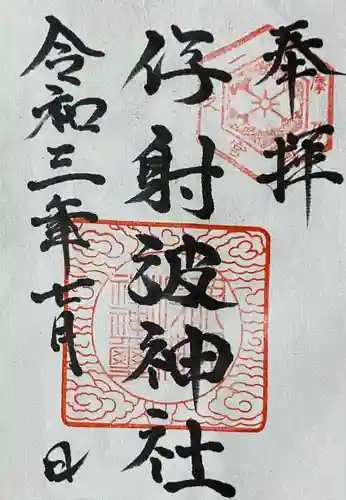 奉拝
伊射波神社
令和三年七月 日